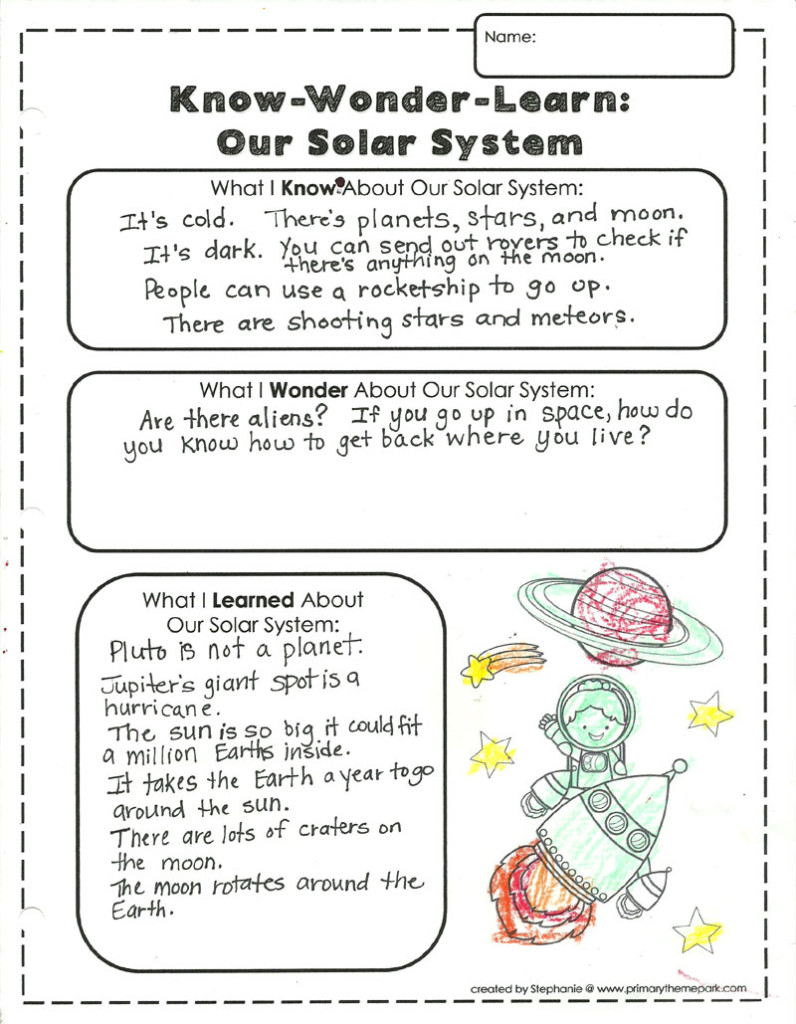 Name:
Know-Wonder-Learn:
Our Solar System
What I Know About Our Solar System:
It's cold. There's planets, stars, and moon.
It's dark. You can send out rovers to check if
there's anything on the moon.
People can use a rocketship to go up.
There are shooting stars and meteors.
What I Wonder About Our Solar System:
Are there aliens? If you go up in space, how do
you know how to get back where you live?
What I Learned About
Our Solar System:
Pluto is not a planet.
Jupiter's giant spot is a
hurricane.
The sun is so big it could fit
a million Earths inside.
It takes the Earth a year to go
around the sun.
There are lots of craters on
the moon.
The moon rotates around the
Earth.
created by Stephanie @ www.primarythemepark.com